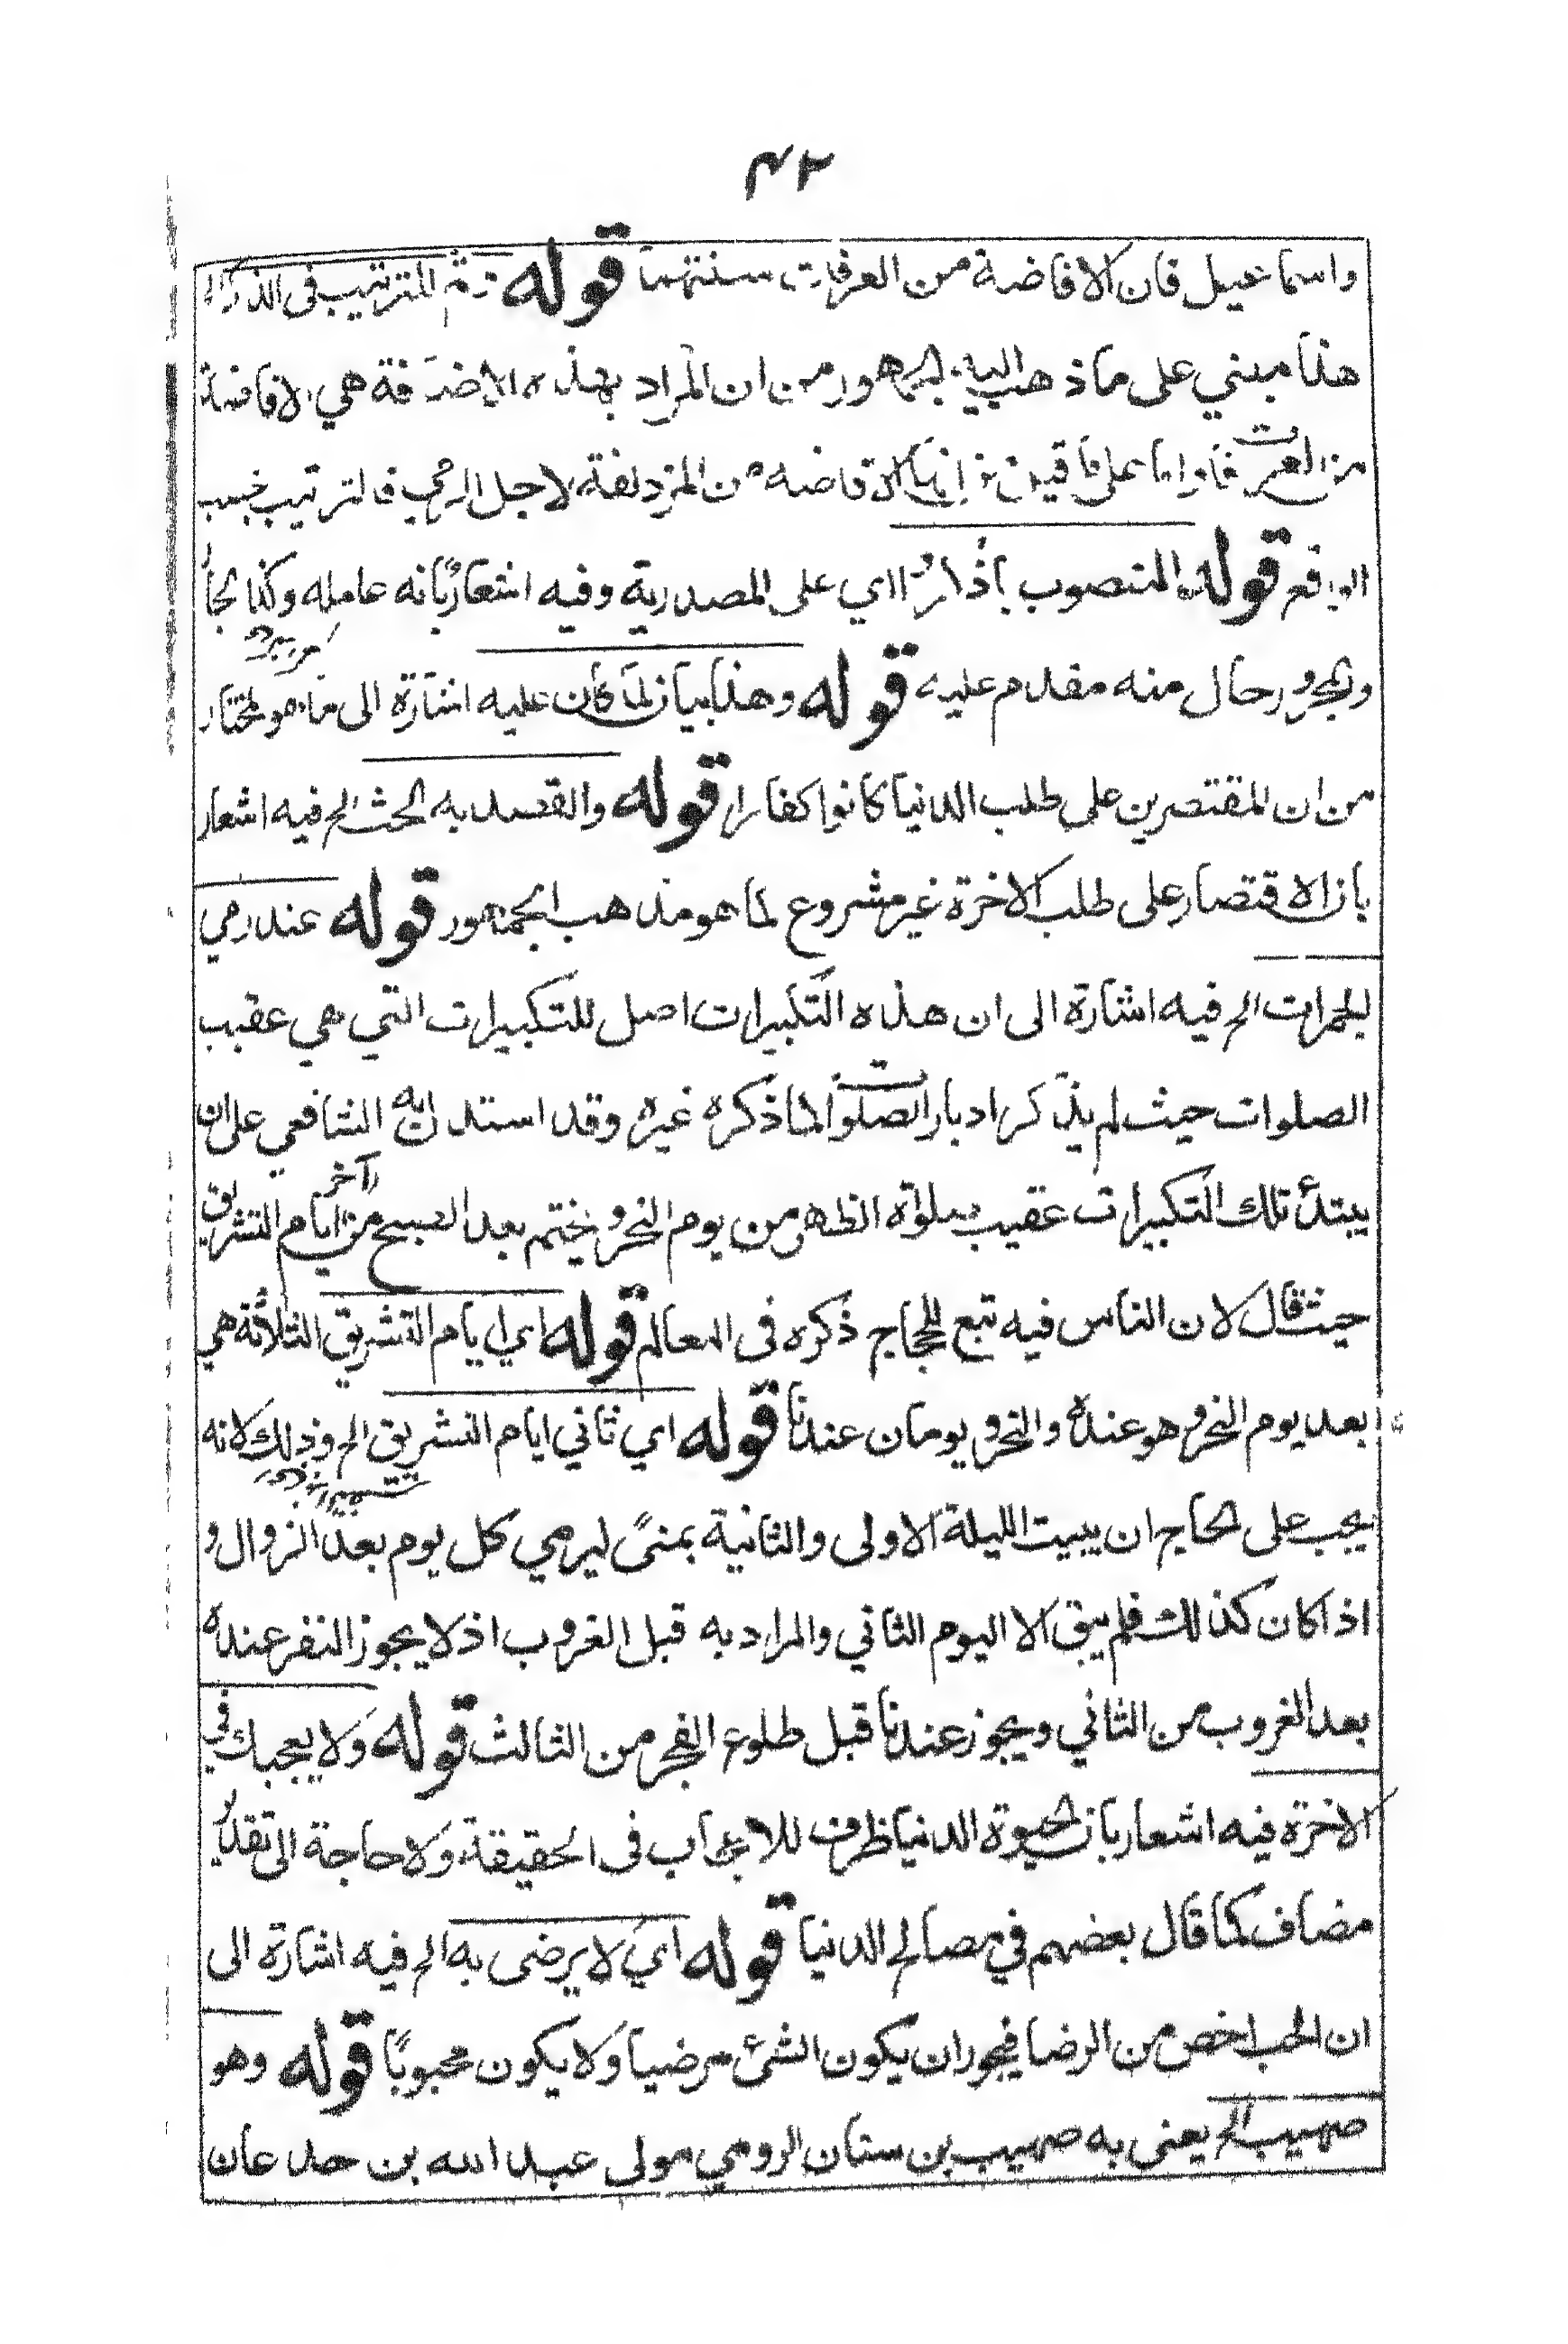 ٤٢
واسماعيل فان الافاضة من العرفات سنتهما قوله وثم للترتيب فى الذكر
هذا مبني على ما ذهب اليه الجمهور من ان المراد بهذه الافاضة هي الافاضة
من العرفات واما على ما قيل من انها الافاضه من المزدلفة لاجل الرمي فالترتيب بحسب
الواقع قوله المنصوب باذكروا اي على المصدرية وفيه اشعار بانه عامله وكذا الجار
والمجرور حال منه مقدم عليه قوله وهذا بيان لما كان عليه اشارة الى ما هو المختار
من ان المقتصرين على طلب الدنيا كانوا كفارا قوله والقصد به الحث الخ فيه اشعار
بان الاقتصار على طلب الاخرة غير مشروع لما هو مذهب الجمهور قوله عند رمي
الجمرات الخ فيه اشارة الى ان هذه التكبيرات اصل للتكبيرات التي هي عقيب
الصلوات حيث لم يذكر ادبار الصلوات لما ذكره غيره وقد استدل به الشافعي على ان
يبتدأ تلك التكبيرات عقيب صلوة الظهر من يوم النحر ويختم بعد الصبح من آخر ايام التشريق
حيث قال لان الناس فيه تبع للحجاج ذكره فى المعالم قوله اي ايام التشريق الثلاثة هي
بعد يوم النحر وهو عنده والنحر ويومان عندنا قوله اي ثاني ايام التشريق الخ وذلك لانه
يجب على الحاج ان يبيت الليلة الاولى والثانية بمنىً ليرمي كل يوم بعد الزوال و
اذا كان كذلك فلم يبق الا اليوم الثاني والمراد به قبل الغروب اذ لا يجوز النفر عنده
بعد الغروب من الثاني ويجوز عندنا قبل طلوع الفجر من الثالث قوله ولا يعجبك في
الاخرة فيه اشعار بان الحيوة الدنيا ظرف للاعجاب فى الحقيقة ولا حاجة الى تقدير
مضاف كما قال بعضهم في مصالح الدنيا قوله اي لا يرضى به الخ فيه اشارة الى
ان الحب اخص من الرضا فيجوز ان يكون الشئ مرضيا ولا يكون محبوبًا قوله وهو
صهيب الخ يعنى به صهيب بن سنان الرومي مولى عبد الله بن حدعان